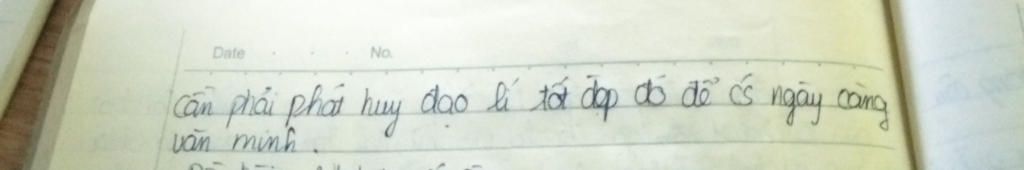 Date No.
cần phải phát huy đạo lí tốt đẹp đó để cs ngày càng
văn minh.